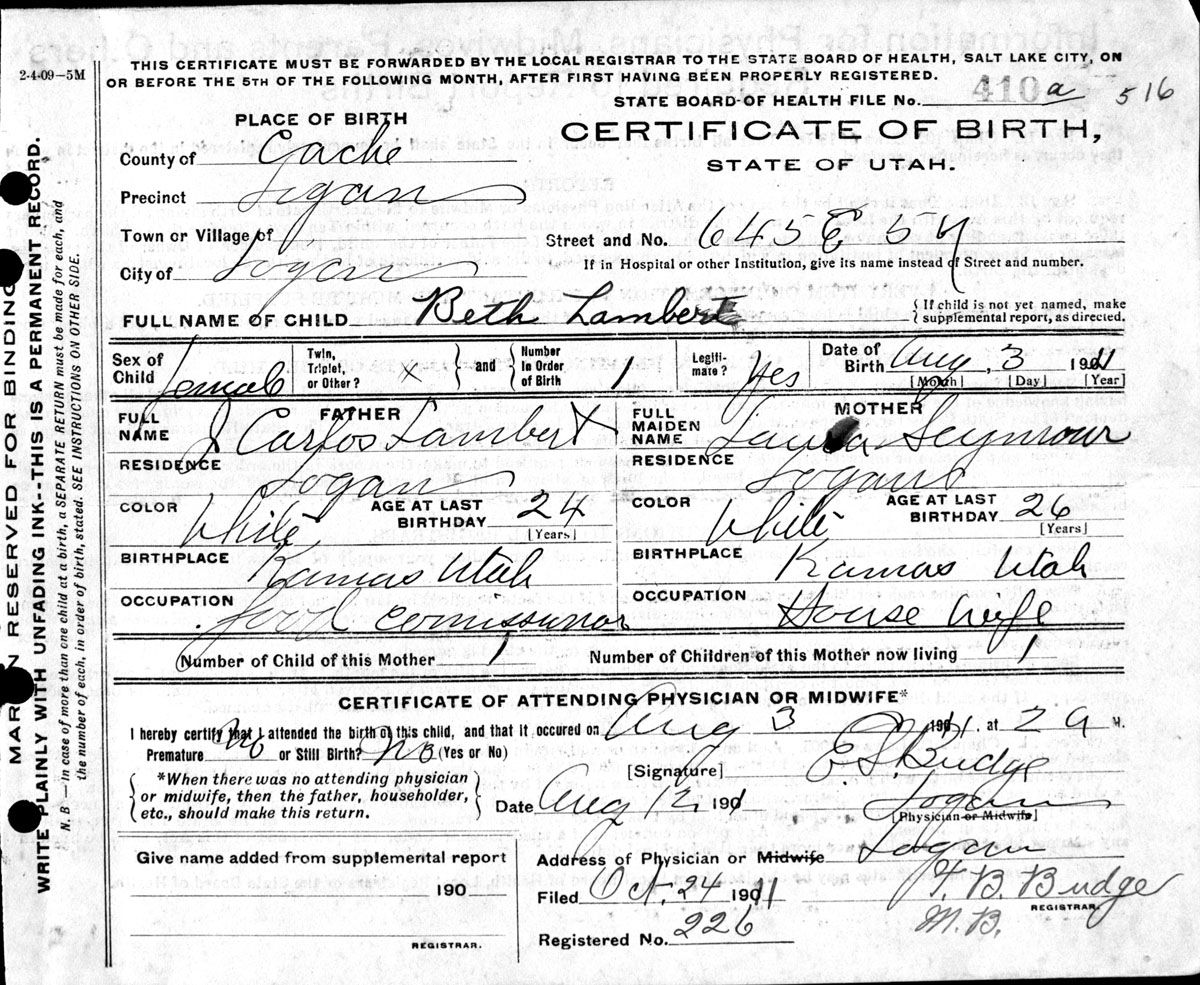 2-4-09—5M
THIS CERTIFICATE MUST BE FORWARDED BY THE LOCAL REGISTRAR TO THE STATE BOARD OF HEALTH, SALT LAKE CITY, ON
OR BEFORE THE 5TH OF THE FOLLOWING MONTH, AFTER FIRST HAVING BEEN PROPERLY REGISTERED.
STATE BOARD OF HEALTH FILE No. 410 a 516
PLACE OF BIRTH
CERTIFICATE OF BIRTH,
STATE OF UTAH.
County of Cache
Precinct Logan
Town or Village of
Street and No. 645 E 5 N
City of Logan
If in Hospital or other Institution, give its name instead of Street and number.
FULL NAME OF CHILD Beth Lambert
{ If child is not yet named, make
supplemental report, as directed.
Sex of Child female
Twin, Triplet, or Other? x } and { Number In Order of Birth 1
Legiti- mate? Yes
Date of Birth Aug, 3 1911
[Month] [Day] [Year]
FATHER
FULL NAME J Carlos Lambert
MOTHER
FULL MAIDEN NAME Laura Seymour
RESIDENCE Logan
RESIDENCE Logan
COLOR White AGE AT LAST BIRTHDAY 24 [Years]
COLOR White AGE AT LAST BIRTHDAY 26 [Years]
BIRTHPLACE Kamas Utah
BIRTHPLACE Kamas Utah
OCCUPATION food comissunor
OCCUPATION House Wife
Number of Child of this Mother 1 Number of Children of this Mother now living 1
CERTIFICATE OF ATTENDING PHYSICIAN OR MIDWIFE*
I hereby certify that I attended the birth of this child, and that it occured on Aug 3 1911. at 2 a M.
Premature No or Still Birth? No (Yes or No)
*When there was no attending physician
or midwife, then the father, householder,
etc., should make this return.
[Signature] E S. Budge
Date Aug 12 1911 Logan
[Physician or Midwife]
Give name added from supplemental report
190
REGISTRAR.
Address of Physician or Midwife Logan
Filed Oct. 24 1911 T. B. Budge
REGISTRAR.
M. B.
Registered No. 226
MARGIN RESERVED FOR BINDING
WRITE PLAINLY WITH UNFADING INK---THIS IS A PERMANENT RECORD.
N. B.—In case of more than one child at a birth, a SEPARATE RETURN must be made for each, and
the number of each, in order of birth, stated. SEE INSTRUCTIONS ON OTHER SIDE.